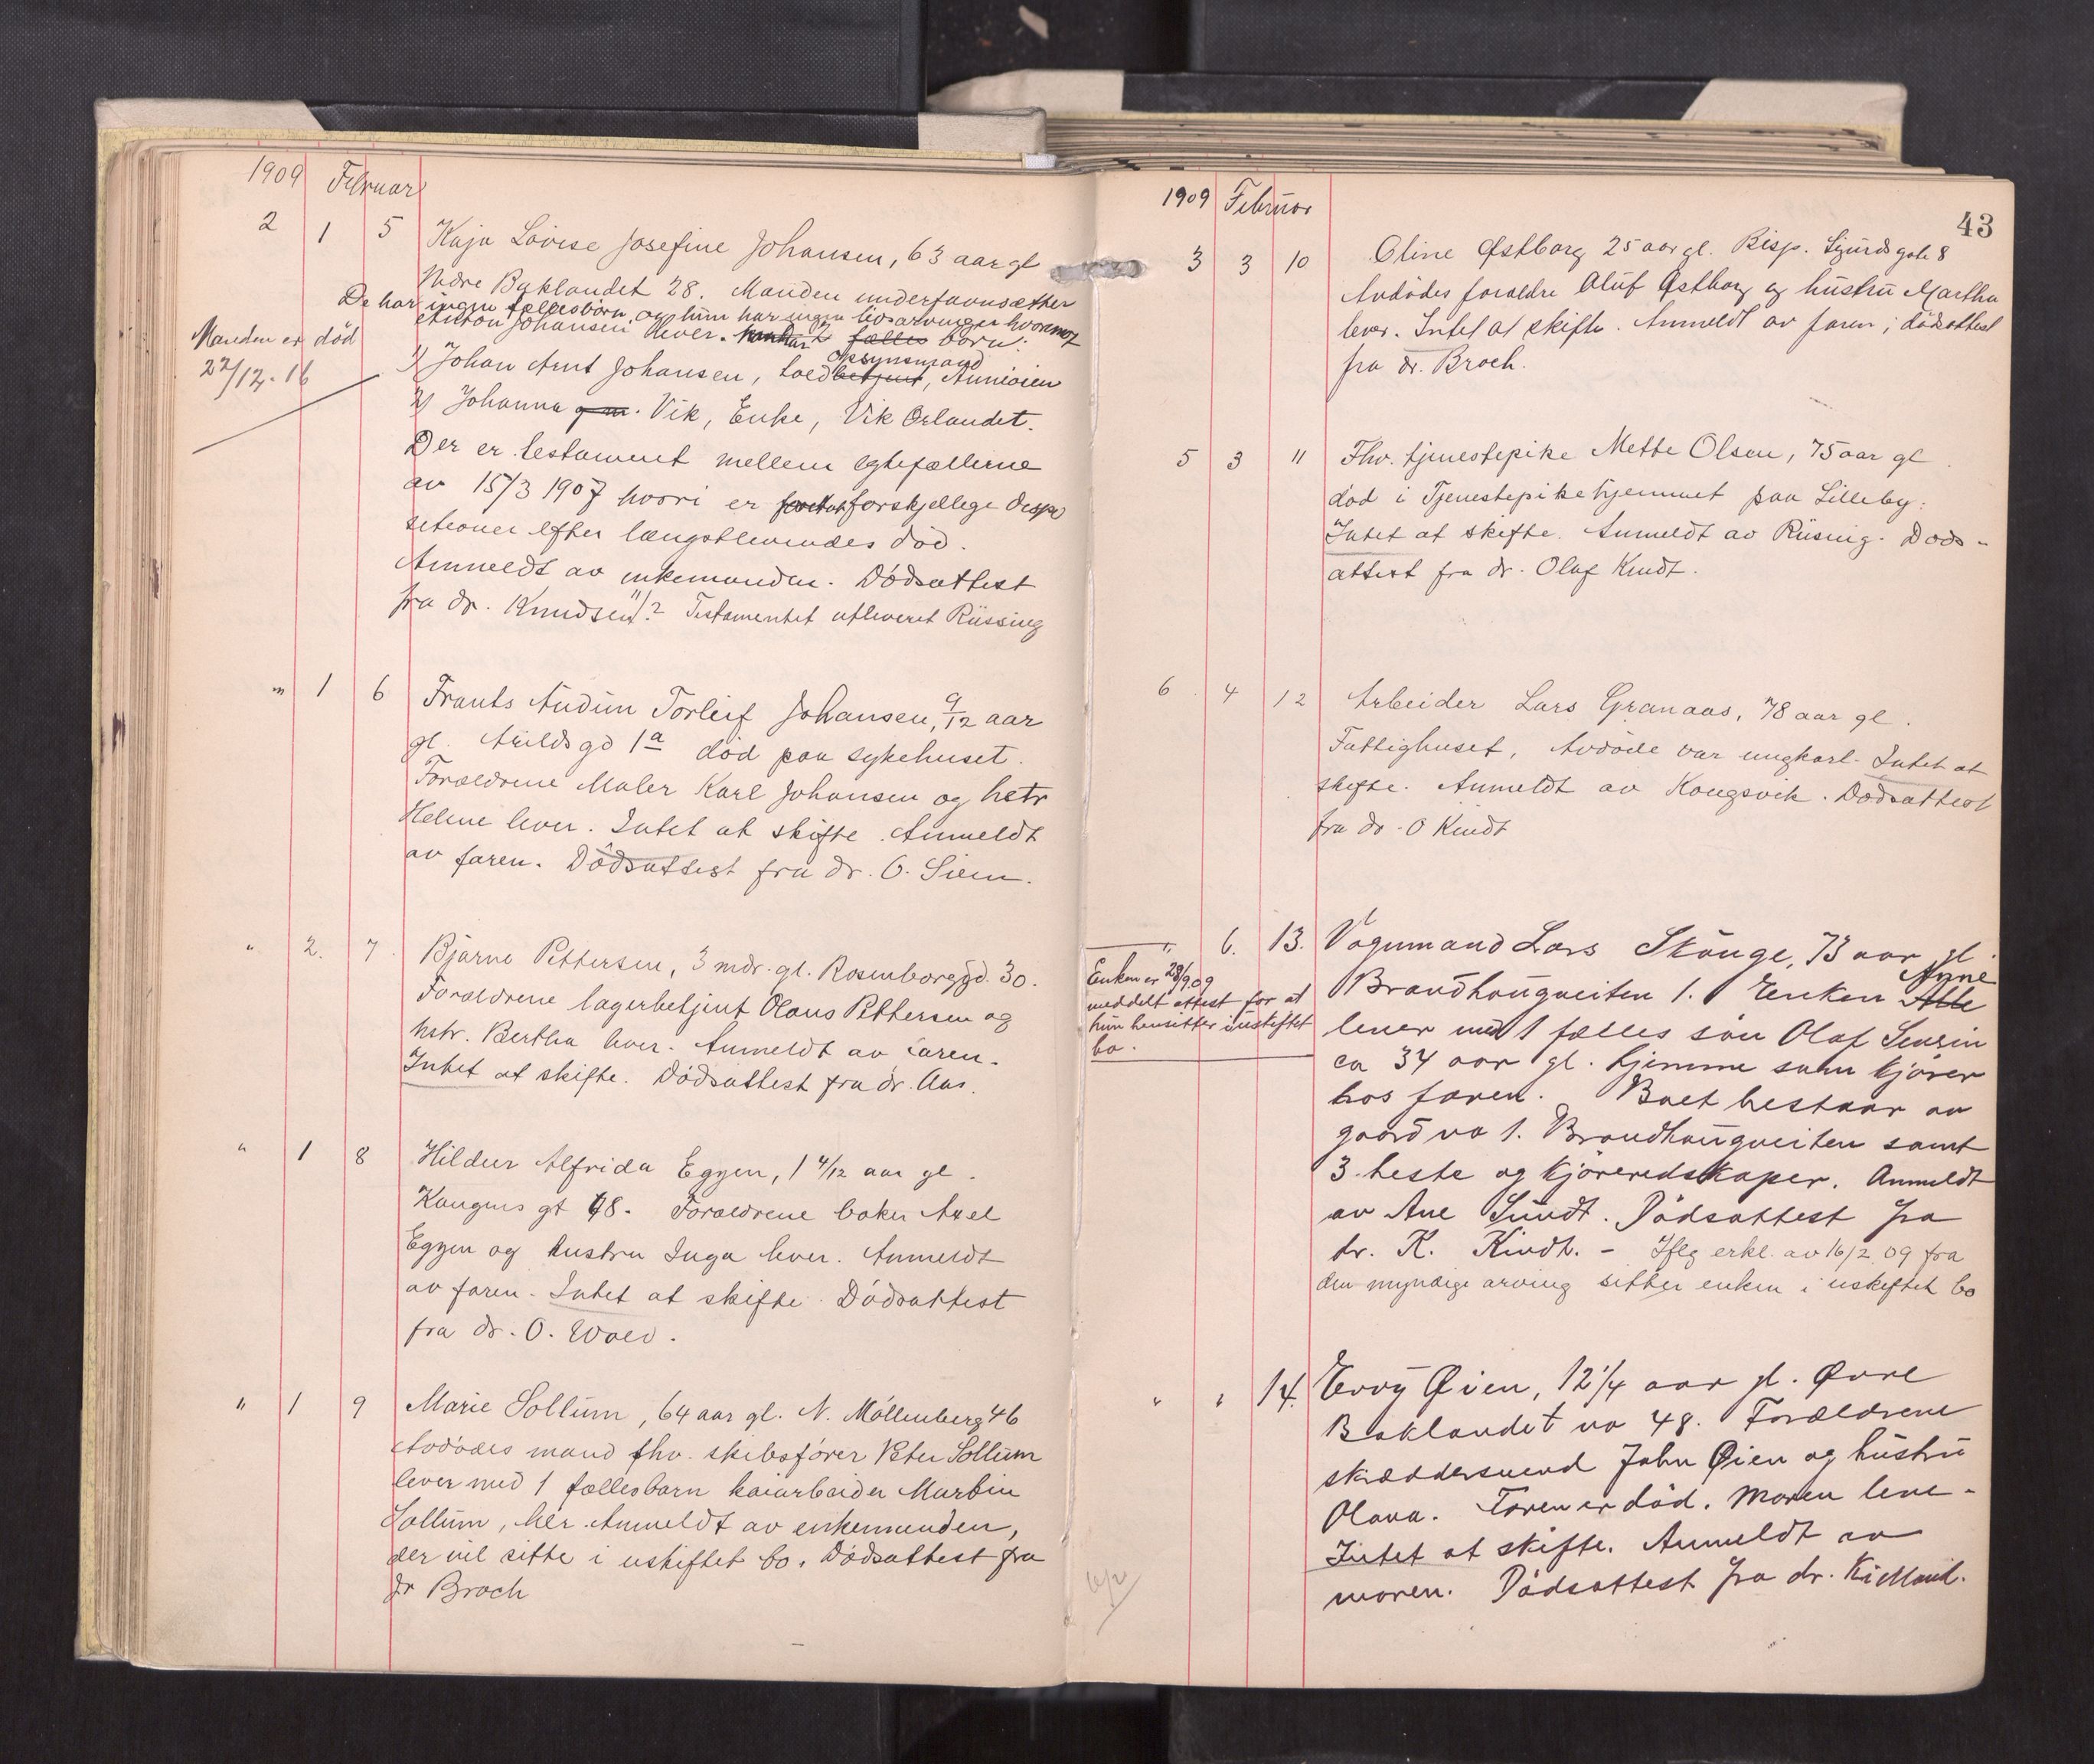 1909 Februar
2 1 5 Kaja Lovise Josefine Johansen, 63 aar gl
Nedre Baklandet 28. Manden undertavnsætker
De har ingen fællesbörn og hun har ingen livsarvinger hvorimot
Anton Johansen lever. han har 2 fælles börn:
Manden er död
22/12.16
opsynsmand
1) Johan Arnt Johansen, toldbetjent,
2) Johanna g. m. Vik, Enke, Vik Örlandet.
Der er testament mellem ægtefællerne
av 15/3 1907 hvori er forskjellige dispo
sitioner efter længstlevendes död.
Anmeldt av enkemanden. Dödsattest
fra dr. Knudsen. Testamentet utleveret Riissing
" 1 6 Frants Audun Torleif Johansen, 9/12 aar
gl. Arildsgd 1a död paa sykehuset.
Forældrene Maler Karl Johansen og hstr
Helene lever. Intet at skifte. Anmeldt
av faren. Dödsattest fra dr. O. Siem.
" 2. 7. Bjarne Pettersen, 3 mdr. gl. Rosenborggd. 30.
Forældrene lagerbetjent Olaus Pettersen og
hstr. Bertha lever. Anmeldt av faren.
Intet at skifte. Dödsattest fra dr. Aas.
" 1 8 Hildur Alfrida Eggen, 1 4/12 aar gl.
Kongens gt 48. Forældrene baker Axel
Eggen og hustru Inga lever. Anmeldt
av faren. Intet at skifte. Dödsattest
fra dr. O. Wold.
" 1 9 Marie Sollum, 64 aar gl. N. Möllenberg 46
Avdödes mand fhv. skibsförer Peter Sollum
lever med 1 fællesbarn kaiarbeider Martin
Sollum, her. Anmeldt av enkemanden,
der vil sitte i uskiftet bo. Dödsattest fra
dr Broch
43
1909 Februar
3 3 10 Oline Østborg 25 aar gl. Bisp. Sigurds gate 8
Avdödes forældre Oluf Østborg og hustru Martha
lever. Intet at skifte. Anmeldt av faren; dödsattest
fra dr. Broch.
5 3 11 Fhv. tjenestepike Mette Olsen, 75 aar gl.
död i Tjenestepikehjemmet paa Lilleby.
Intet at skifte. Anmeldt av Riising. Döds-
attest fra dr. Olaf Kindt.
6 4 12 Arbeider Lars Granaas, 78 aar gl.
Fattighuset, Avdöde var ungkarl. Intet at
skifte. Anmeldt av Kongsvik. Dödsattest
fra dr. O Kindt
" 6. 13. Vognmand Lars Skauge, 73 aar gl
Anne
Brandhaugveiten 1. Enken
Enken er 28/9 09
meddelt attest for at
hun hensitter i uskiftet
bo.
lever med 1 fælles sön Olaf
ca 34 aar gl. hjemme som kjörer
hos faren. Boet bestaar av
gaard no 1. Brandhaugveiten samt
3 heste og kjöreredskaper. Anmeldt
av Ane Sundt. Dödsattest fra
dr. K. Kindt. - Iflg erkl. av 16/2 09 fra
den myndige arving sitter enken i uskiftet bo
" " 14. Envy Øien, 12 1/4 aar gl. Øvre
Baklandet no 48. Forældrene
skræddersvend John Øien og hustru
Olava. Faren er död. Moren leve-
Intet at skifte. Anmeldt av
moren. Dödsattest fra dr. Kielland.